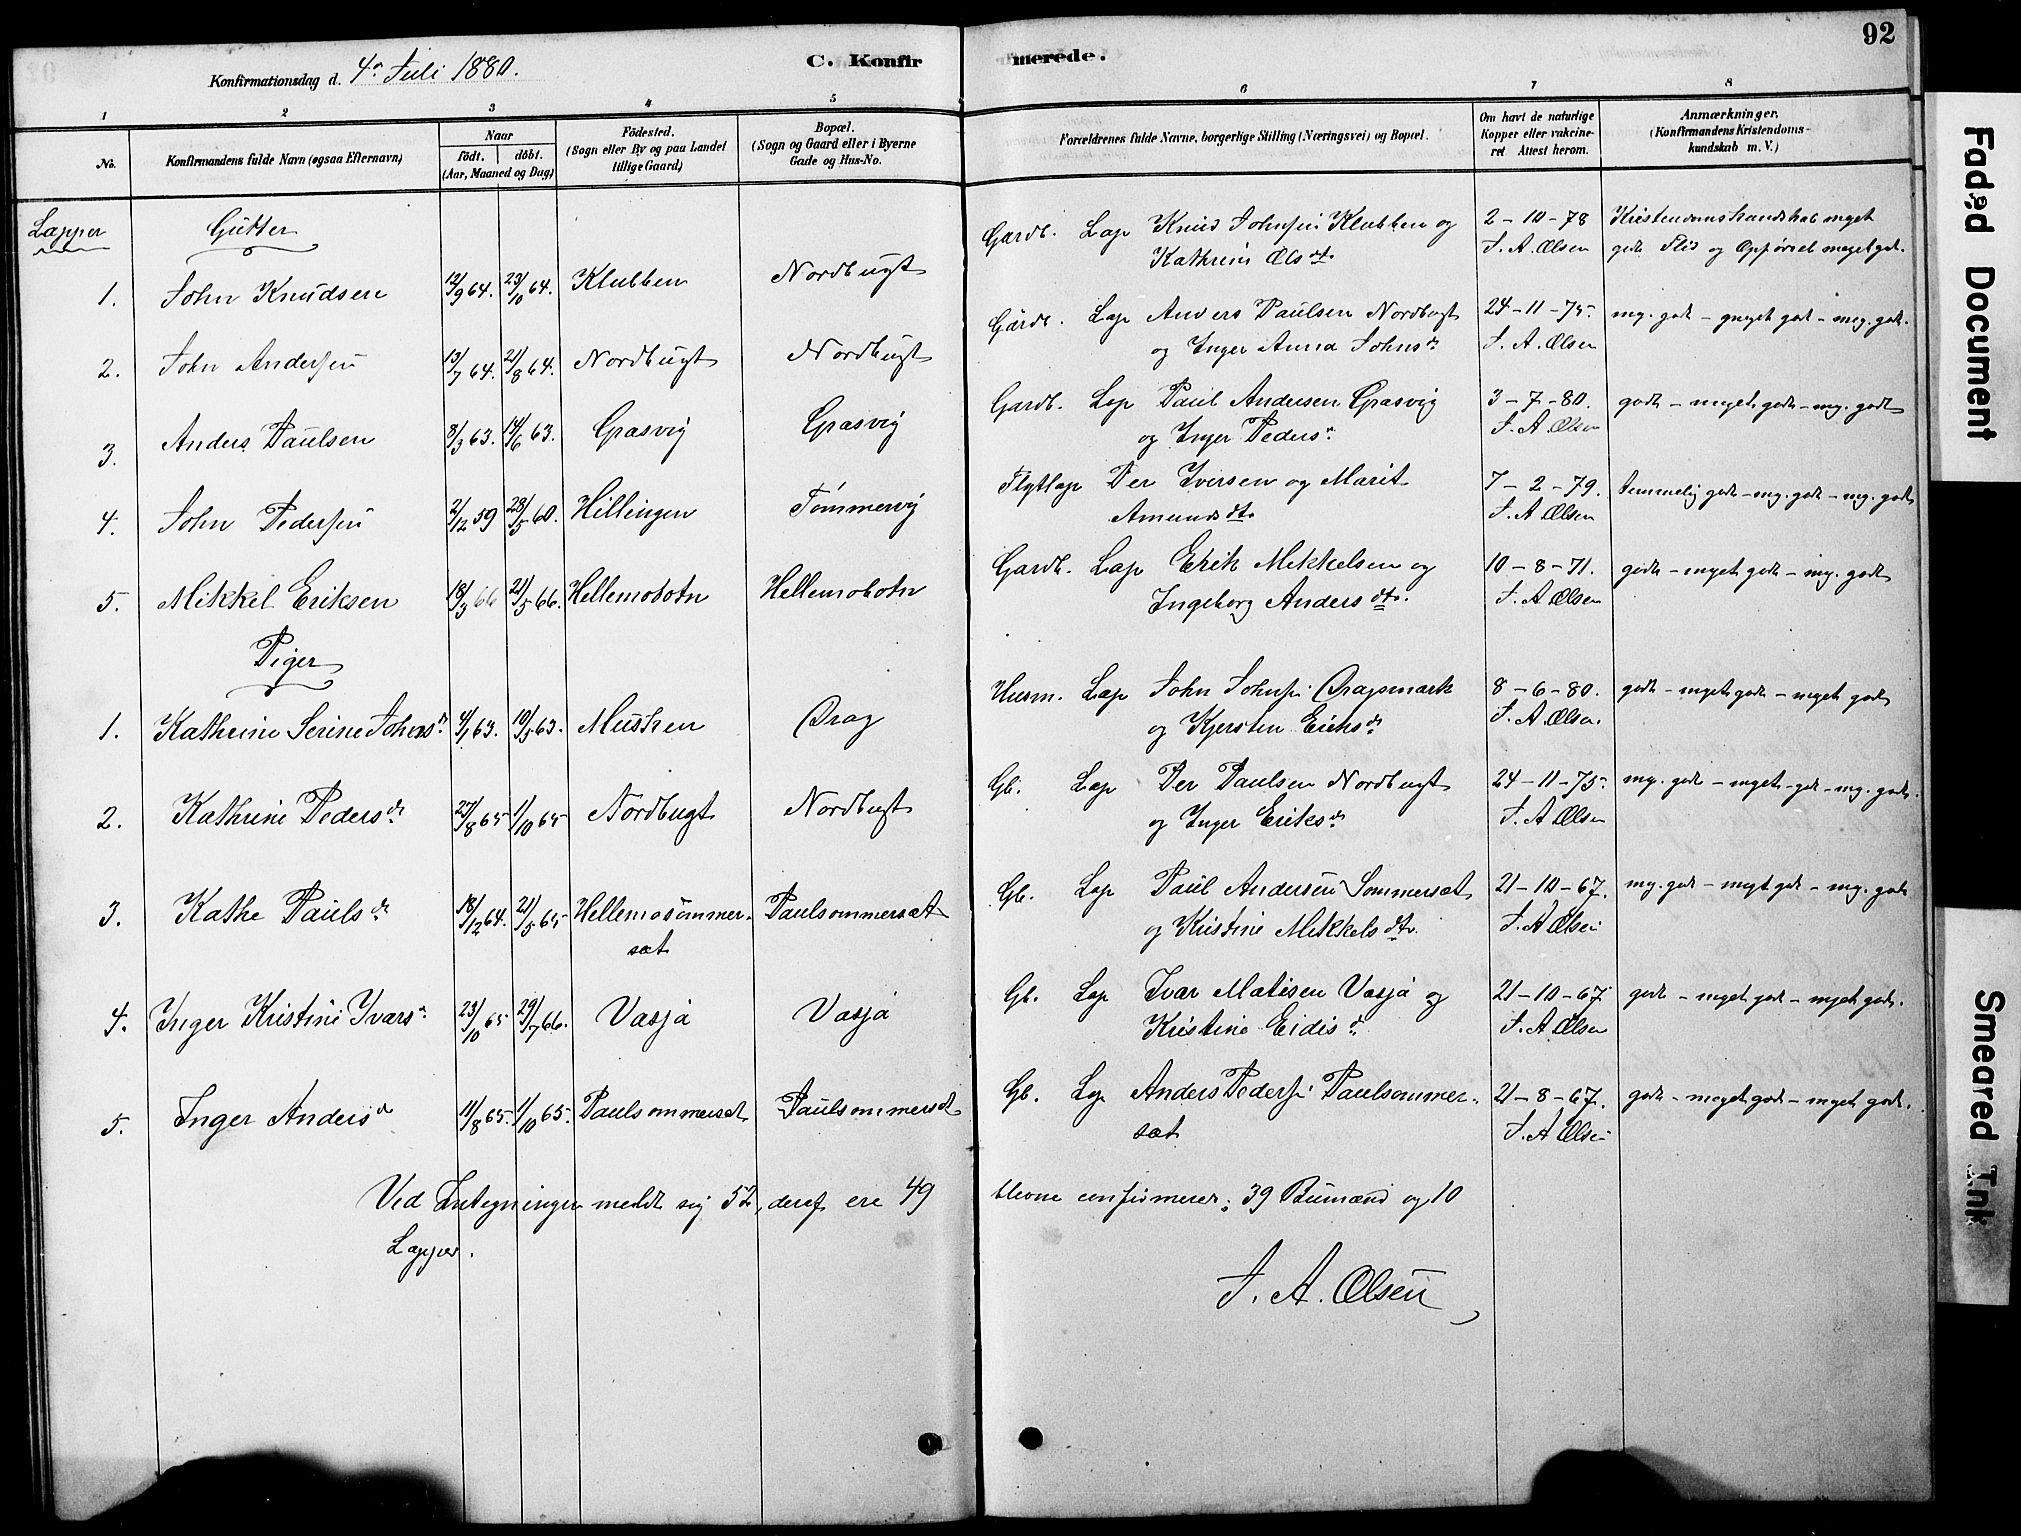 92
Konfirmationsdag d. 4de Juli 1880.
C. Konfirmerede.
1 2 3 4 5 6 7 8
No.
Konfirmandens fulde Navn (ogsaa Efternavn)
Naar
födt. döbt.
(Aar, Maaned og Dag)
Födested.
(Sogn eller By og paa Landet
tillige Gaard)
Bopæl.
(Sogn og Gaard eller i Byerne
Gade og Hus-No.
Forældrenes fulde Navne, borgerlige Stilling (Næringsvei) og Bopæl.
Om havt de naturlige
Kopper eller vakcine-
ret Attest herom.
Anmærkninger.
(Konfirmandens Kristendoms-
kundskab m. V.)
Lapper
Gutter
1. John Knudsen 12/9 64. 23/10 64. Klubben Nordbugt Gardb. Lap Knud Johnsen Klubben og 2-10-78 Kristendomskundskab meget
Kathrine Olsdt. J. A. Olsen godt Flid og Opförsel meget godt.
2. John Andersen 13/7 64. 21/8 64. Nordbugt Nordbugt Gårdb. Lap Anders Paulsen Nordbugt 24-11-75. mg. godt - meget godt - meg. godt.
og Inger Anna Johnsdt J. A. Olsen
3. Anders Paulsen 8/3 63. 14/6 63. Grasvig Grasvig Gardb. Lap Paul Andersen Grasvig 3-7-80. godt - meget godt - mg. godt
og Inger Pedersdt J. A Olsen
4. John Pedersen 2/12 59 28/5 60. Hillingen Tømmervig Flytlap Per Iversen og Marit 7-2-79. temmelig godt - mg. godt - mg. godt
Amundsdt. J. A Olsen
5. Mikkel Eriksen 18/3 66 21/5 66. Hellemobotn Hellemobotn Gardb. Lap Erik Mikkelsen og 10-8-71. godt - meget godt - mg. godt
Ingeborg Andersdt. J. A Olsen
Piger
1. Kathrine Serine Johnsdt 4/1 63. 10/5 63. Musken Drag Husm. Lap John Johnsen Dragsmark 8-6-80. godt - meget godt - meget godt
og Kjersten Eriksdt J. A Olsen.
2. Kathrine Pedersdt 27/8 65 1/10 65 Nordbugt Nordbugt Gb. Lap Per Paulsen Nordbugt 24-11-75 mg. godt - meget godt - mg. godt.
og Inger Eriksdt J. A Olsen
3. Kathe Paulsdt 18/12 64. 21/5 65 Hellemosommer- Paulsommersæt Gb. Lap Paul Andersen Sommersæt 21-10-67. mg. godt - meget godt - mg. godt
sæt og Kristine Mikkelsdt. J. A Olsen
4. Inger Kristine Ivarsdt 23/10 65 29/7 66. Vasja Vasja Gb. Lap Ivar Matisen Vasja og 21-10-67. godt - meget godt - meget godt.
Kristine Eidisdt J. A Olsen
5. Inger Andersdt 11/8 65. 1/10 65. Paulsommersæt Paulsommersæt Gb. Lap Anders Pedersen Paulsommer- 21-8-67. godt - meget godt - meget godt.
sæt J. A Olsen
Ved Indtegningen meldte sig 52, deraf ere 49 blevne confirmerede; 39 Bumænd og 10
Lapper.
J. A. Olsen
Faded Document
Smeared Ink